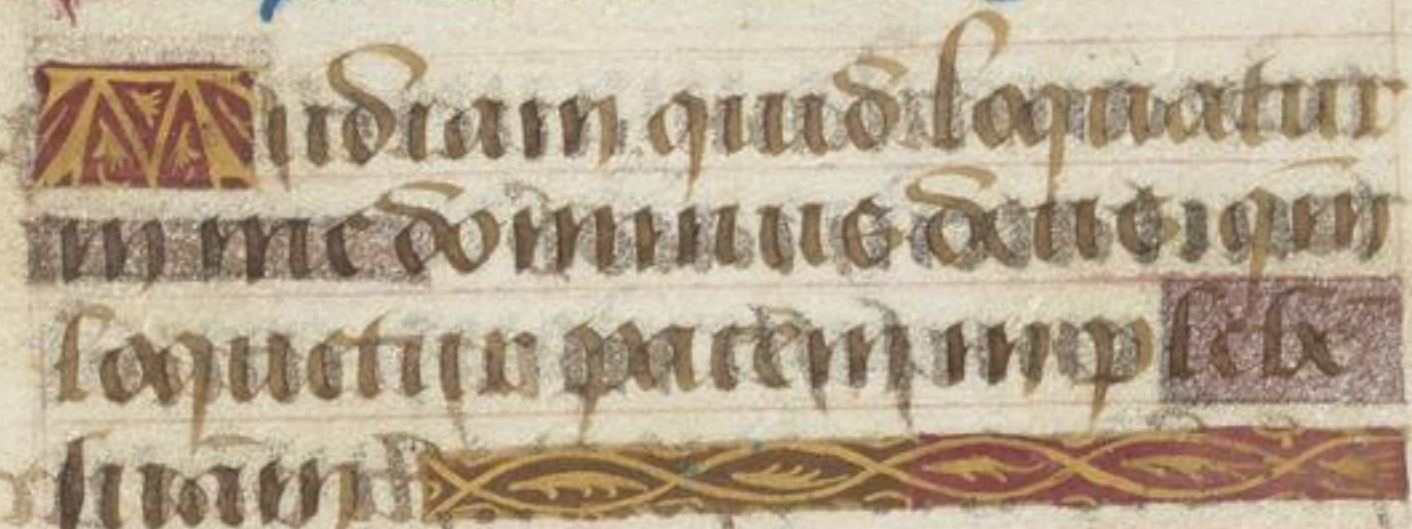 Audiam quid loquatur
in me dominus deus qm̄
loquetur pacem in plebē
suam